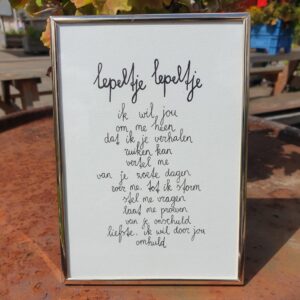 lepeltje lepeltje
ik wil jou
om me heen
dat ik je verhalen
ruiken kan
vertel me
van je zoete dagen
voer me. tot ik storm
stel me vragen
laat me proeven
van je onschuld
liefste. ik wil door jou
omhuld